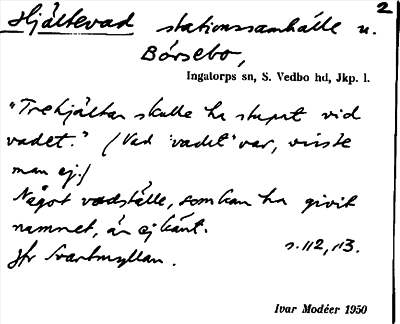 2
Hjältevad stationssamhälle u.
Börsebo,
Ingatorps sn, S. Vedbo hd, Jkp. l.
"Trehjältar skulle ha stupat vid
vadet." (Vad 'vadet' var, visste
man ej.)
Något vadställe, som kan ha givit
namnet, är ej känt.
s. 112, 113.
Jfr Svartmyllan.
Ivar Modéer 1950